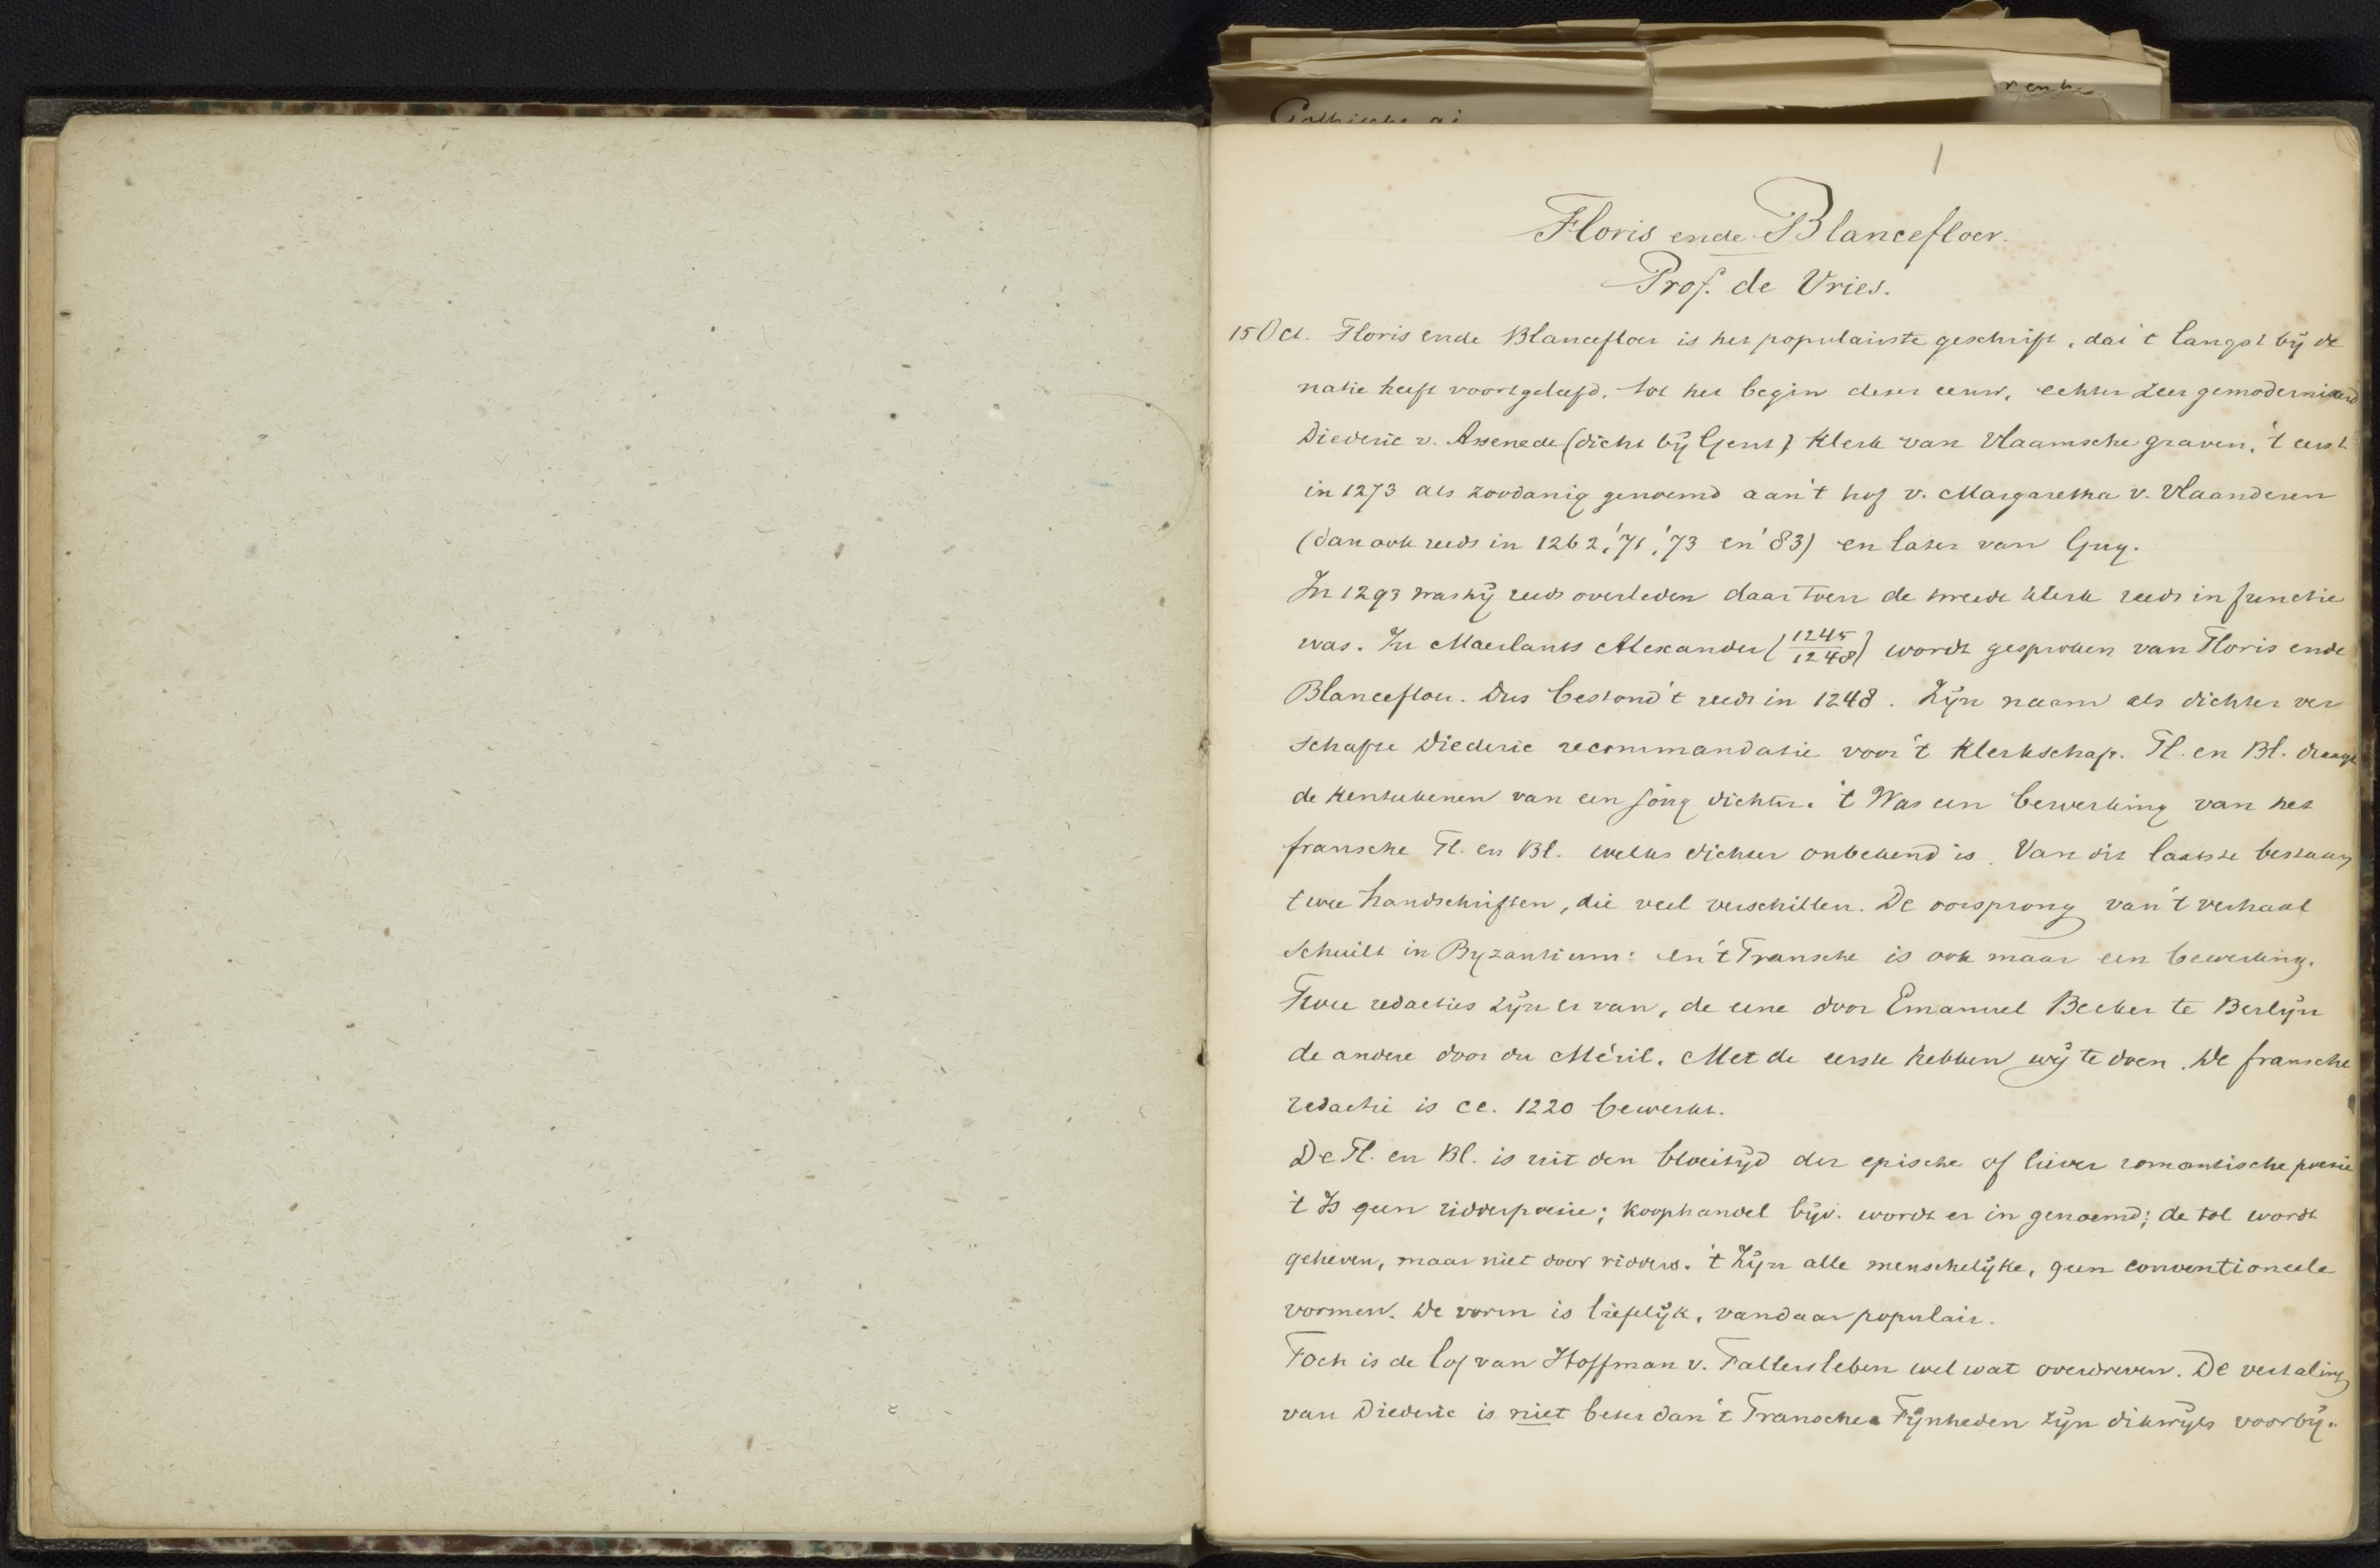 1
Floris ende Blancefloer.
Prof. de Vries.
15 Oct. Floris ende Blancefloer is het populairste geschrift, dat 't langst bij de
natie heeft voortgeleefd, tot het begin dezer eeuw, echter zeer gemoderniseerd
Diederic v. Assenede (dicht bij Gent) klerk van Vlaamsche graven, 't eerst
in 1273 als zoodanig genoemd aan 't hof v. Margaretha v. Vlaanderen
(dan ook reeds in 1262, '71, '73 en '83) en later van Guy.
In 1293 was hij reeds overleden daar toen de tweede klerk reeds in functie
was. In Maerlants Alexander (1245/1248) wordt gesproken van Floris ende
Blancefloer. Dus bestond 't reeds in 1248. Zijn naam als dichter ver
schafte Diederic recommandatie voor 't klerkschap. Fl. en Bl. draagt
de kenteekenen van een jong dichter. 't Was een bewerking van het
fransche Fl. en Bl. welks dichter onbekend is. Van dit laatste bestaan
twee handschriften, die veel verschillen. De oorsprong van 't verhaal
schuilt in Byzantium: en 't Fransche is ook maar een bewerking.
Twee redacties zijn er van, de eene door Emanuel Becker te Berlijn
de andere door du Méril. Met de eerste hebben wij te doen. De fransche
redactie is ce. 1220 bewerkt.
De Fl. en Bl. is uit den bloeitijd der epische of liever romantische poesie
't Is geen ridderpoesie; koophandel bijv. wordt er in genoemd; de tol wordt
geheven, maar niet door ridders. 't Zijn alle menschelijke, geen conventioneele
vormen. De vorm is liefelijk, vandaar populair.
Toch is de lof van Hoffman v. Fallersleben wel wat overdreven. De vertaling
van Diederic is niet beter dan 't Fransche. Fijnheden zijn dikwijls voorbij-